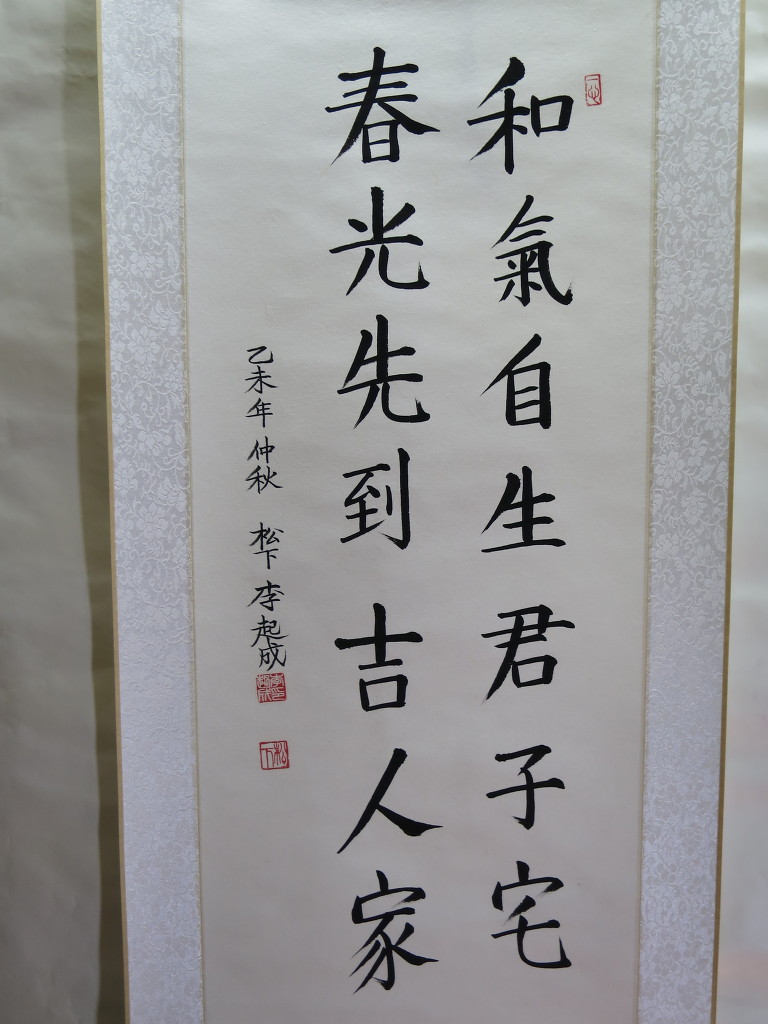 和氣自生君子宅
春光先到吉人家
乙未年仲秋 松下李起成
松下